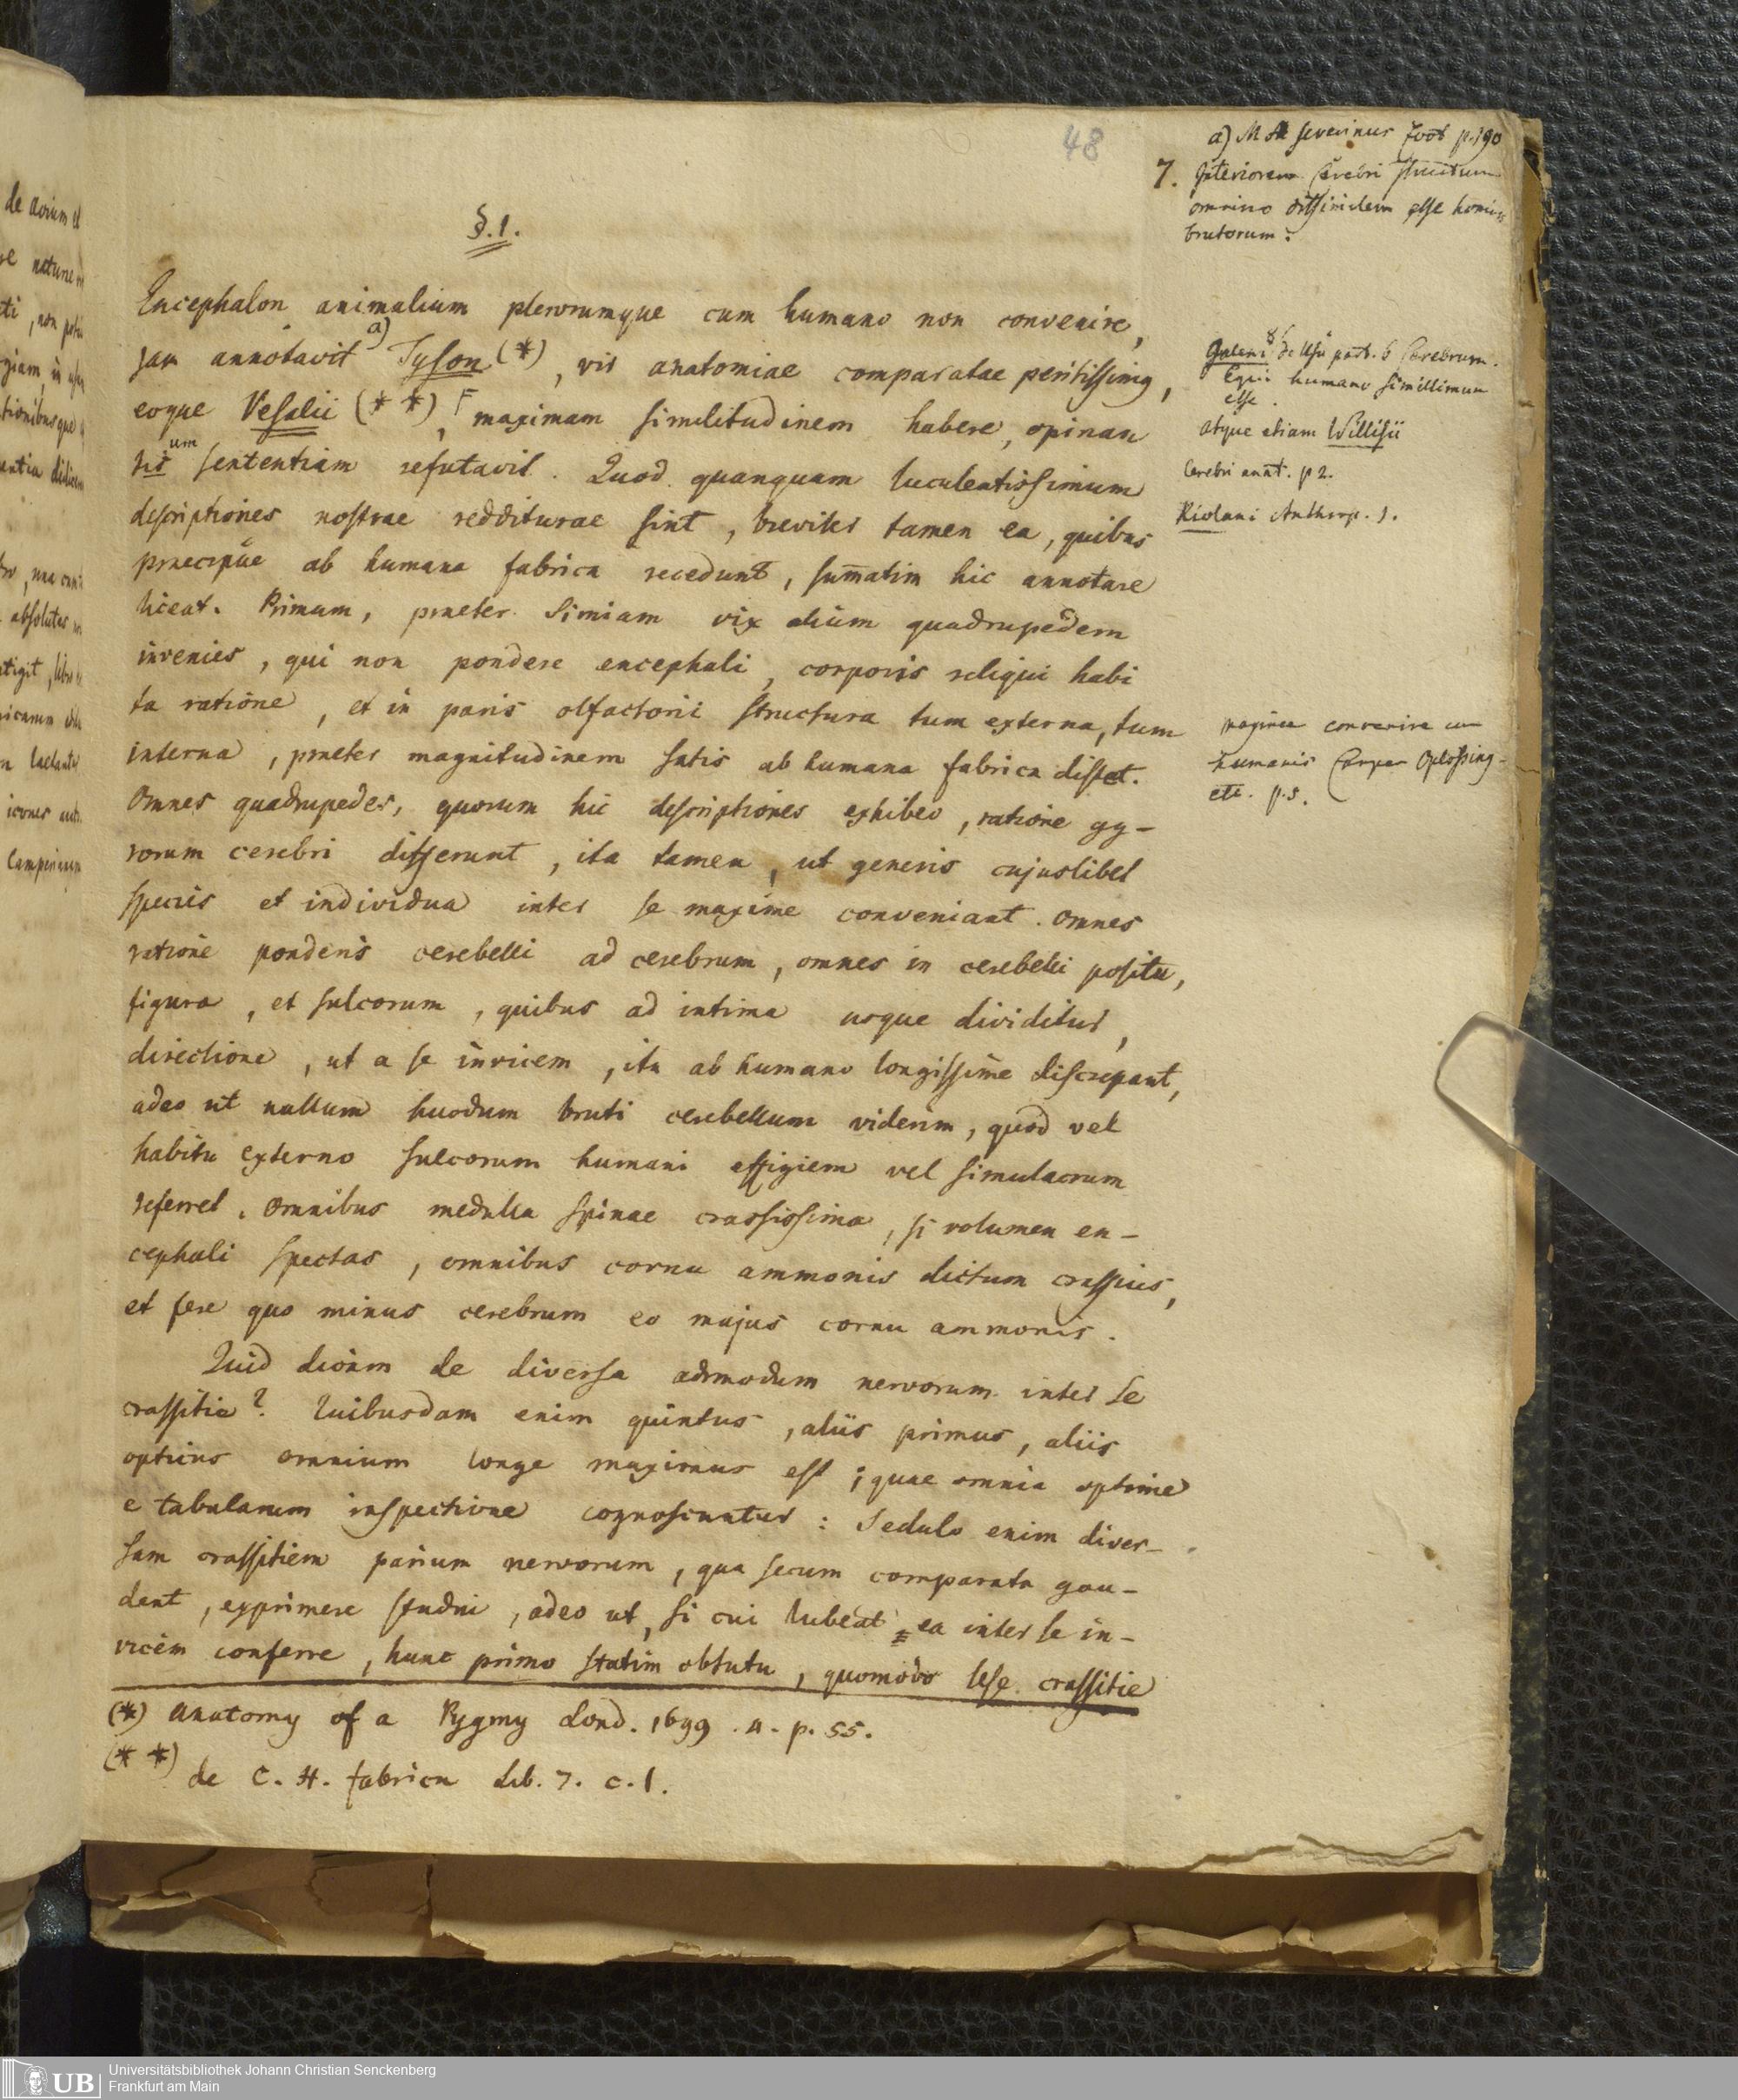 48
7.
a) M A Severinus Zoot p. 190
Interiorem Cerebri structum
omnino dissimilem esse homin
brutorum.
§. 1.
Encephalon animalium plerorumque cum humano non convenire,
jam annotavit a) Tyson (*), vir anatomiae comparatae peritissimg,
eoque Vesalii (**), F maximam similitudinem habere, opinan
tis um sententiam refutavit. Quod quanquam luculentissimum
descriptiones nostrae redditurae sint, breviter tamen ea, quibus
praecipue ab humana fabrica recedunt, sum̄atim hic annotare
liceat. Primum, praeter Simiam vix alium quadrupedem
invenies, qui non pondere encephali, corporis reliqui habi
ta ratione, et in paris olfactorii structura tum externa, tum
interna, praeter magnitudinem satis ab humana fabrica distet.
Omnes quadrupedes, quorum hic descriptiones exhibeo, ratione gy-
rorum cerebri differunt, ita tamen, ut generis cujuslibet
species et individua inter se maxime conveniant. Omnes
ratione ponderis cerebelli ad cerebrum, omnes in cerebelli positu,
figura, et sulcorum, quibus ad intima usque dividitur,
directione, ut a se invicem, ita ab humano longissime discrepant,
adeo ut nullum hucdum bruti cerebellum viderim, quod vel
habitu externo sulcorum humani effigiem vel simulacrum
referret. Omnibus medulla spinae crassissima, si volumen en-
cephali spectas, omnibus cornu ammonis dictum crassius,
et fere quo minus cerebrum eo majus cornu ammonis.
Quid dicam de diversa admodum nervorum inter se
crassitie? Quibusdam enim quintus, aliis primus, aliis
opticus omnium longe maximus est; quae omnia optime
e tabularum inspectione cognoscuntur: Sedulo enim diver-
sam crassitiem parium nervorum, qua secum comparata gau-
dent, exprimere studui, adeo ut, si cui lubeat, ea inter se in-
vicem conferre, hunc primo statim obtutu, quomodo sese crassitie
(*) Anatomy of a Pygmy Lond. 1699. 4. p. 55.
(**) de C. H. fabrica Lib. 7. c. 1.
Galeni 8 de Usu part. 6 Cerebrum
Equi humano simillimum
esse.
atque etiam Willisii
Cerebri anat. p 2.
Riolani Anthrop. 1.
maxime convenire cum
humanis Camper Oplossing
etc. p. 5.
Universitätsbibliothek Johann Christian Senckenberg
Frankfurt am Main
UB